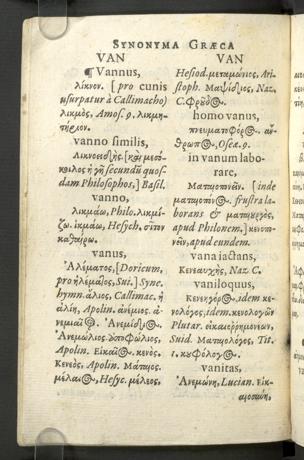 SYNONYMA GRÆCA
VAN
¶ Vannus,
λίκνον. [pro cunis
usurpatur à Callimacho)
λικμὸς, Amos. 9. λικμη-
τήριον.
vanno similis,
Λικνοειδὴς. [καὶ
ἡ γῆ secundũ quos-
dam Philosophos,] Basil.
vanno,
λικμάω, Philo. λικμί-
ζω. ἰκμάω, Hesych. σῖτον
καθαίρω.
vanus,
Ἀλέματος, [Doricum,
pro ἠλέματος, Sui.] Syne.
hymn. ἅλιος, Callimac. ἡ
ἁλίη, Apolin. ἀνέμιος. ἀ-
νεμιαῖος. Ἀνεμίδιος.
Ἀνεμώλιος.
Apolin. Εἰκαῖος. κενὸς.
Κενεὸς, Apolin. Μάταιος.
Hesyc. μέλεος,
VAN
Hesiod. μεταμώνιος, Ari-
stoph. Μαψίδιος, Naz.
C. φροῦδος.
homo vanus,
πνευματοφόρος. ἄν-
θρωπος, Osea. 9.
in vanum labo-
rare,
Ματαιοπονεῖν. [inde
ματαιοπόνος. frustra la-
borans & ματαιουργὸς,
apud Philonem.] κενοπο-
νεῖν, apud eundem.
vana iactans,
Κενεαυχὴς, Naz. C.
vaniloquus,
Κενηγόρος, idem κε-
νολόγος, idem. κενολογῶν
Plutar. εἰκαιορρημονέων,
Suid. Ματαιολόγος, Tit.
1. κυφολόγος.
vanitas,
Ἀνεμώνη, Lucian. εἰκ-
αιοσύνη,